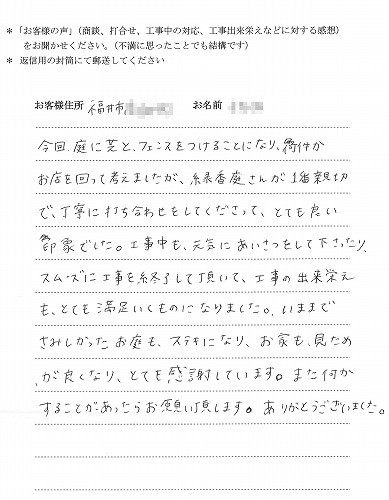 ＊「お客様の声」（商談、打合せ、工事中の対応、工事出来栄えなどに対する感想）
をお聞かせください。（不満に思ったことでも結構です）
＊ 返信用の封筒にて郵送してください
お客様住所 福井市 お名前
今回、庭に芝と、フェンスをつけることになり、何件か
お店を回って考えましたが、緑香庭さんが1番親切
で、丁寧に打ち合わせをしてくださって、とても良い
印象でした。工事中も、元気にあいさつをして下さったり、
スムーズに工事を終了して頂いて、工事の出来栄え
も、とても満足いくものになりました。いままで
さみしかったお庭も、ステキになり、お家も、見ため
が良くなり、とても感謝しています。また何か
することがあったらお願い頂します。ありがとうございました。